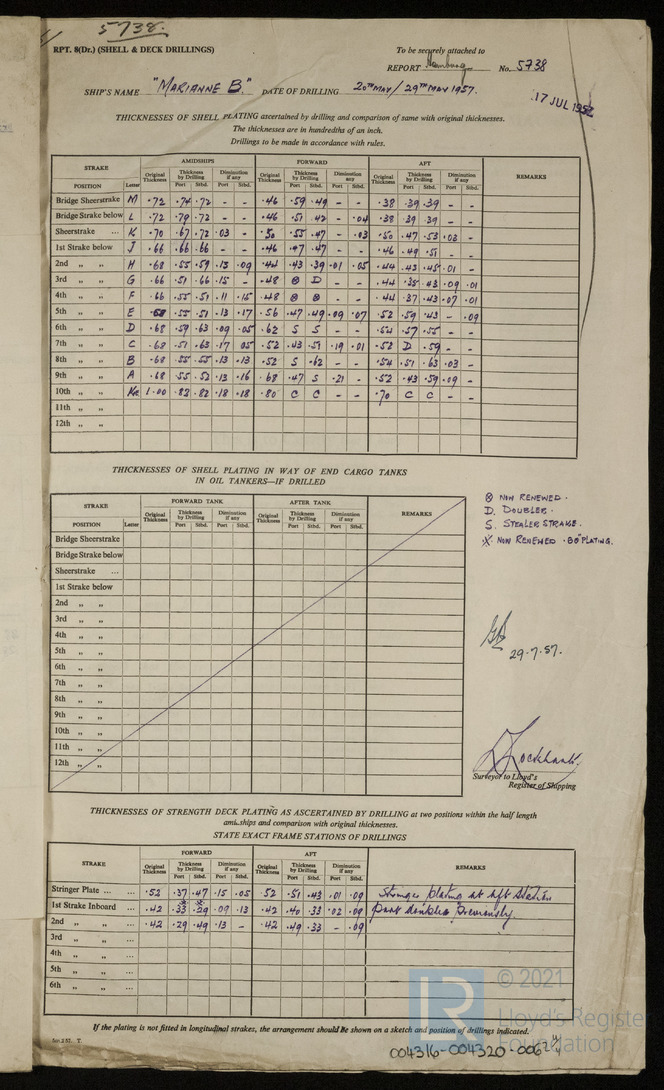 5738.
RPT. 8(Dr.) (SHELL & DECK DRILLINGS)
To be securely attached to
REPORT Hamburg No. 5738
SHIP'S NAME "MARIANNE B." DATE OF DRILLING 20TH MAY / 29TH MAY 1957.
17 JUL 195
THICKNESSES OF SHELL PLATING ascertained by drilling and comparison of same with original thicknesses.
The thicknesses are in hundredths of an inch.
Drillings to be made in accordance with rules.
STRAKE AMIDSHIPS FORWARD AFT REMARKS
POSITION Letter Original Thickness Thickness by Drilling Diminution if any Original Thickness Thickness by Drilling Diminution if any Original Thickness Thickness by Drilling Diminution if any
Port Stbd. Port Stbd. Port Stbd. Port Stbd. Port Stbd. Port Stbd.
Bridge Sheerstrake M .72 .74 .72 - - .46 .59 .49 - - .38 .39 .39 - -
Bridge Strake below L .72 .79 .72 - - .46 .51 .42 - .04 .38 .39 .39 - -
Sheerstrake ... K .70 .67 .72 .03 - .50 .55 .47 - .03 .50 .47 .53 .03 -
1st Strake below J .66 .66 .66 - - .46 .47 .47 - - .46 .49 .51 - -
2nd " " H .68 .55 .59 .13 .09 .44 .43 .39 .01 .05 .44 .43 .45 .01 -
3rd " " G .66 .51 .66 .15 - .48 ⊗ D .44 .35 .43 .09 .01
4th " " F .66 .55 .51 .11 .15 .48 ⊗ ⊗ - - .44 .37 .43 .07 .01
5th " " E .68 .55 .51 .13 .17 .56 .47 .49 .09 .07 .52 .59 .43 - .09
6th " " D .68 .59 .63 .09 .05 .62 S S - - .54 .57 .55 - -
7th " " C .68 .51 .63 .17 .05 .52 .43 .51 .19 .01 .52 D .59 -
8th " " B .68 .55 .55 .13 .13 .52 S .62 - - .54 .51 .63 .03 -
9th " " A .68 .55 .52 .13 .16 .68 .47 S .21 - .52 .43 .59 .09 -
10th " " Ke 1.00 .82 .82 .18 .18 .80 C C - - .70 C C - -
11th " "
12th " "
THICKNESSES OF SHELL PLATING IN WAY OF END CARGO TANKS
IN OIL TANKERS—IF DRILLED
STRAKE FORWARD TANK AFTER TANK REMARKS
POSITION Letter Original Thickness Thickness by Drilling Diminution if any Original Thickness Thickness by Drilling Diminution if any
Port Stbd. Port Stbd. Port Stbd. Port Stbd.
Bridge Sheerstrake
Bridge Strake below
Sheerstrake ...
1st Strake below
2nd " "
3rd " "
4th " "
5th " "
6th " "
7th " "
8th " "
9th " "
10th " "
11th " "
12th " "
⊗ NOW RENEWED.
D. DOUBLER.
S. STEALER STRAKE.
※ NOW RENEWED .80" PLATING.
29.7.57.
D Lockhart
Surveyor to Lloyd's
Register of Shipping
THICKNESSES OF STRENGTH DECK PLATING AS ASCERTAINED BY DRILLING at two positions within the half length
amidships and comparison with original thicknesses.
STATE EXACT FRAME STATIONS OF DRILLINGS
STRAKE FORWARD AFT REMARKS
Original Thickness Thickness by Drilling Diminution if any Original Thickness Thickness by Drilling Diminution if any
Port Stbd. Port Stbd. Port Stbd. Port Stbd.
Stringer Plate ... ... .52 .37 .47 .15 .05 .52 .51 .43 .01 .09 Stringer plating at Aft Station
1st Strake Inboard ... .42 .33 .29 .09 .13 .42 .40 .33 .02 .09 part doubled previously.
2nd " " ... .42 .29 .49 .13 - .42 .49 .33 - .09
3rd " " ...
4th " " ...
5th " " ...
6th " " ...
If the plating is not fitted in longitudinal strakes, the arrangement should be shown on a sketch and position of drillings indicated.
© 2021
Lloyd's Register
Foundation
LR
004316-004320-006